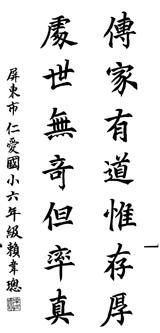 傳家有道惟存厚
處世無奇但率真
屏東市仁愛國小六年級賴韋璁